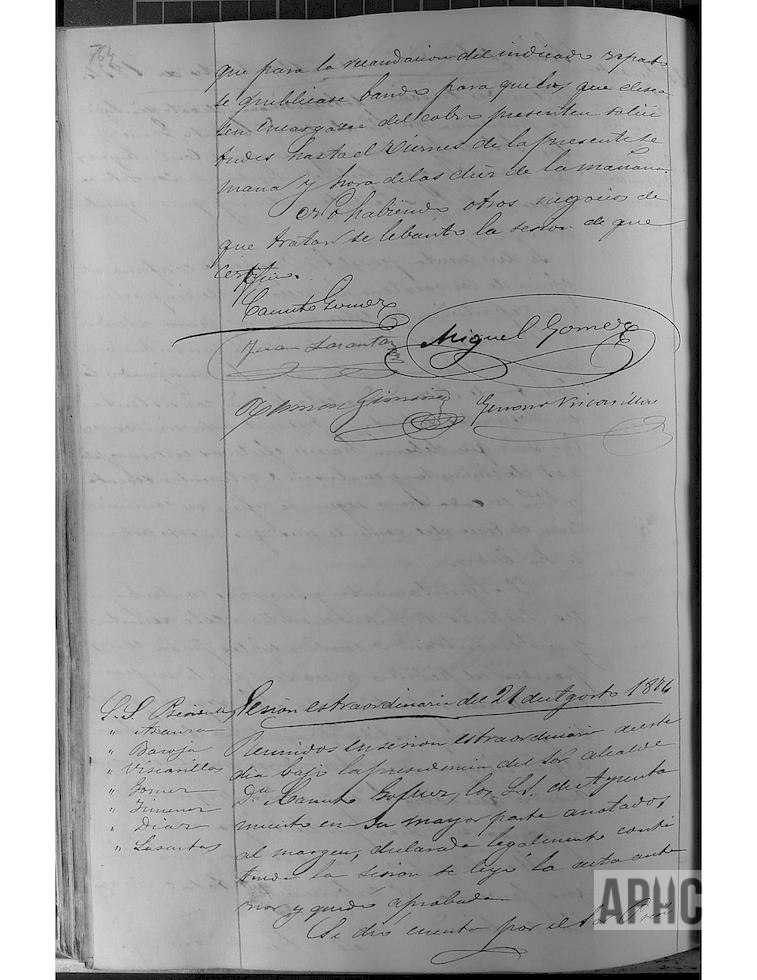 764
que para la recaudacion del indicado reparto
se publicase bando para que los que desea
sen encargarse del cobro presenten solici
tudes hasta el Viernes de la presente se
mana y hora de las diez de la mañana.
No habiendo otros negocios de
que tratar se lebantó la sesion de que
certifico.
Canuto Gomez
Juan Lasantas
Miguel Gomez
Ramon Gimenez
Genaro Viscasillas
Sesion estraordinaria del 21 de Agosto 1874
S. S. Preside
" 
" Baroja
" Viscasillas
" Gomez
" Jimenez
" Diaz
" Lasantas
Reunidos en sesion estraordinaria de este
dia bajo la presidencia del Sor. alcalde
Dn Canuto Gomez, los SS. de Ayunta
miento en su mayor parte anotados
al margen, declarada legalmente consti
tuida la sesion se leyó la acta ante
rior y quedó aprobada
Se dió cuenta por el Sor. Presi
APHC